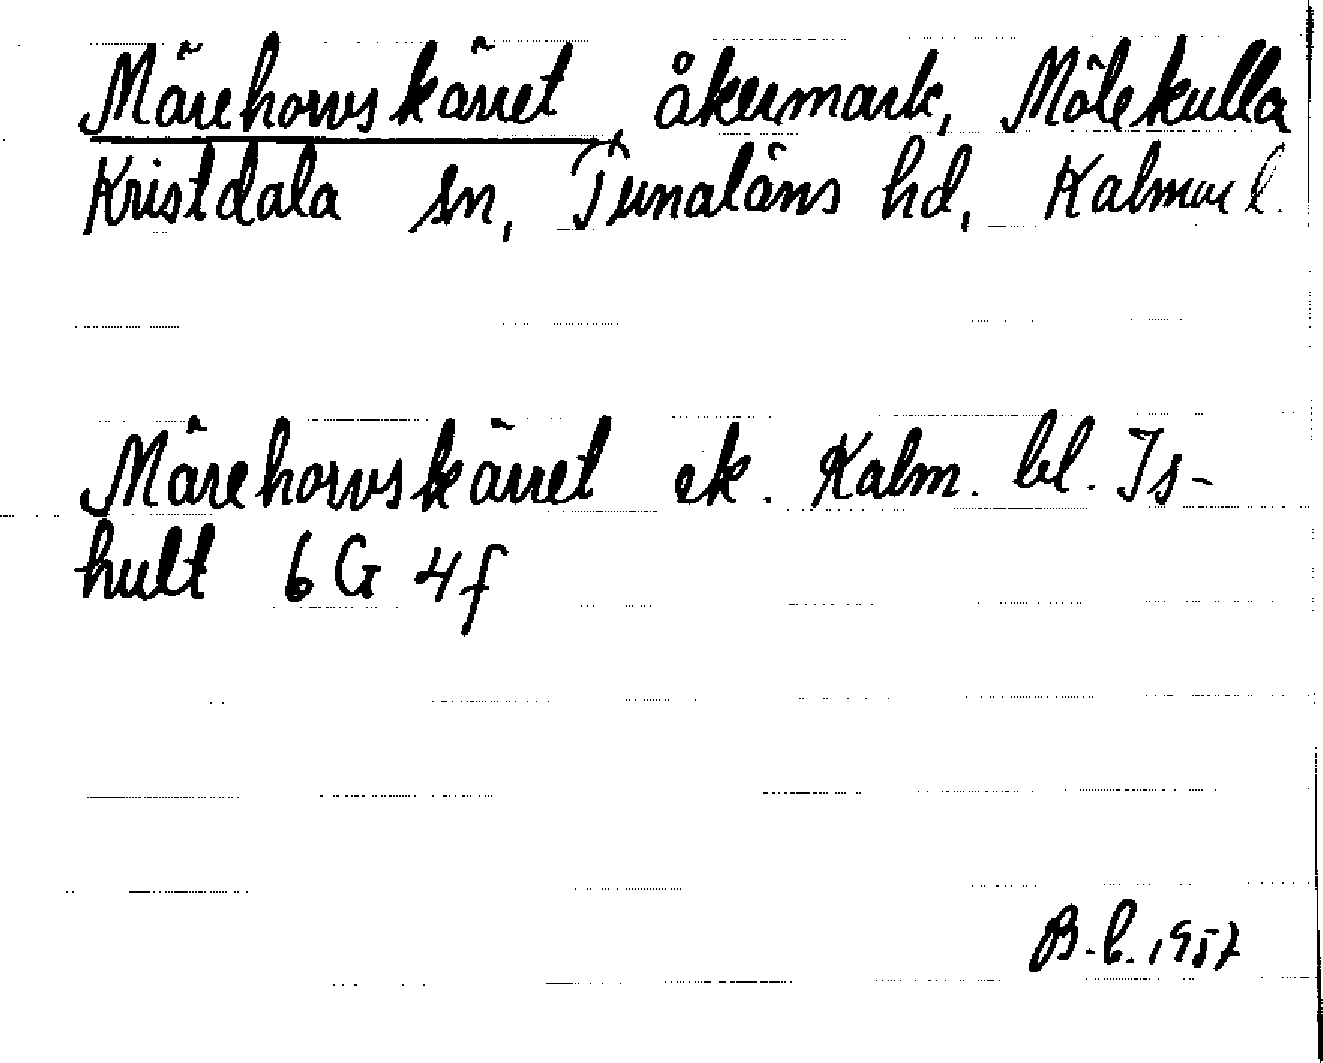 Märehorvskärret, åkermark, Mölekulla
Kristdala sn, Tunaläns hd, Kalmar l.
Märehorvskärret ek. Kalm. bl. Is-
hult 6G 4f
B.b. 1957